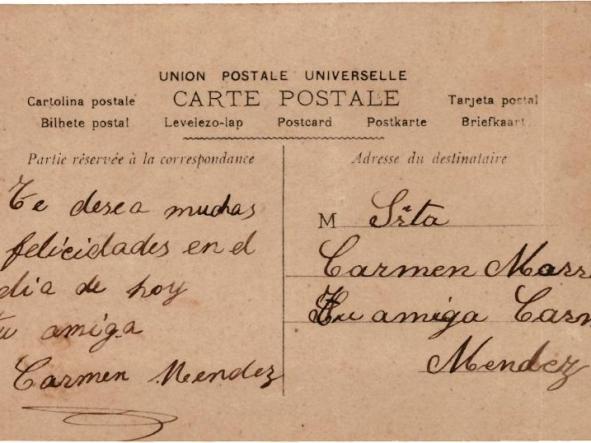 UNION POSTALE UNIVERSELLE
Cartolina postale CARTE POSTALE Tarjeta postal
Bilhete postal Levelezo-lap Postcard Postkarte Briefkaart
Partie réservée à la correspondance
Te desea muchas
felicidades en el
dia de hoy
tu amiga
Carmen Mendez
Adresse du destinataire
M Srta
Carmen
Tu amiga
Mendez